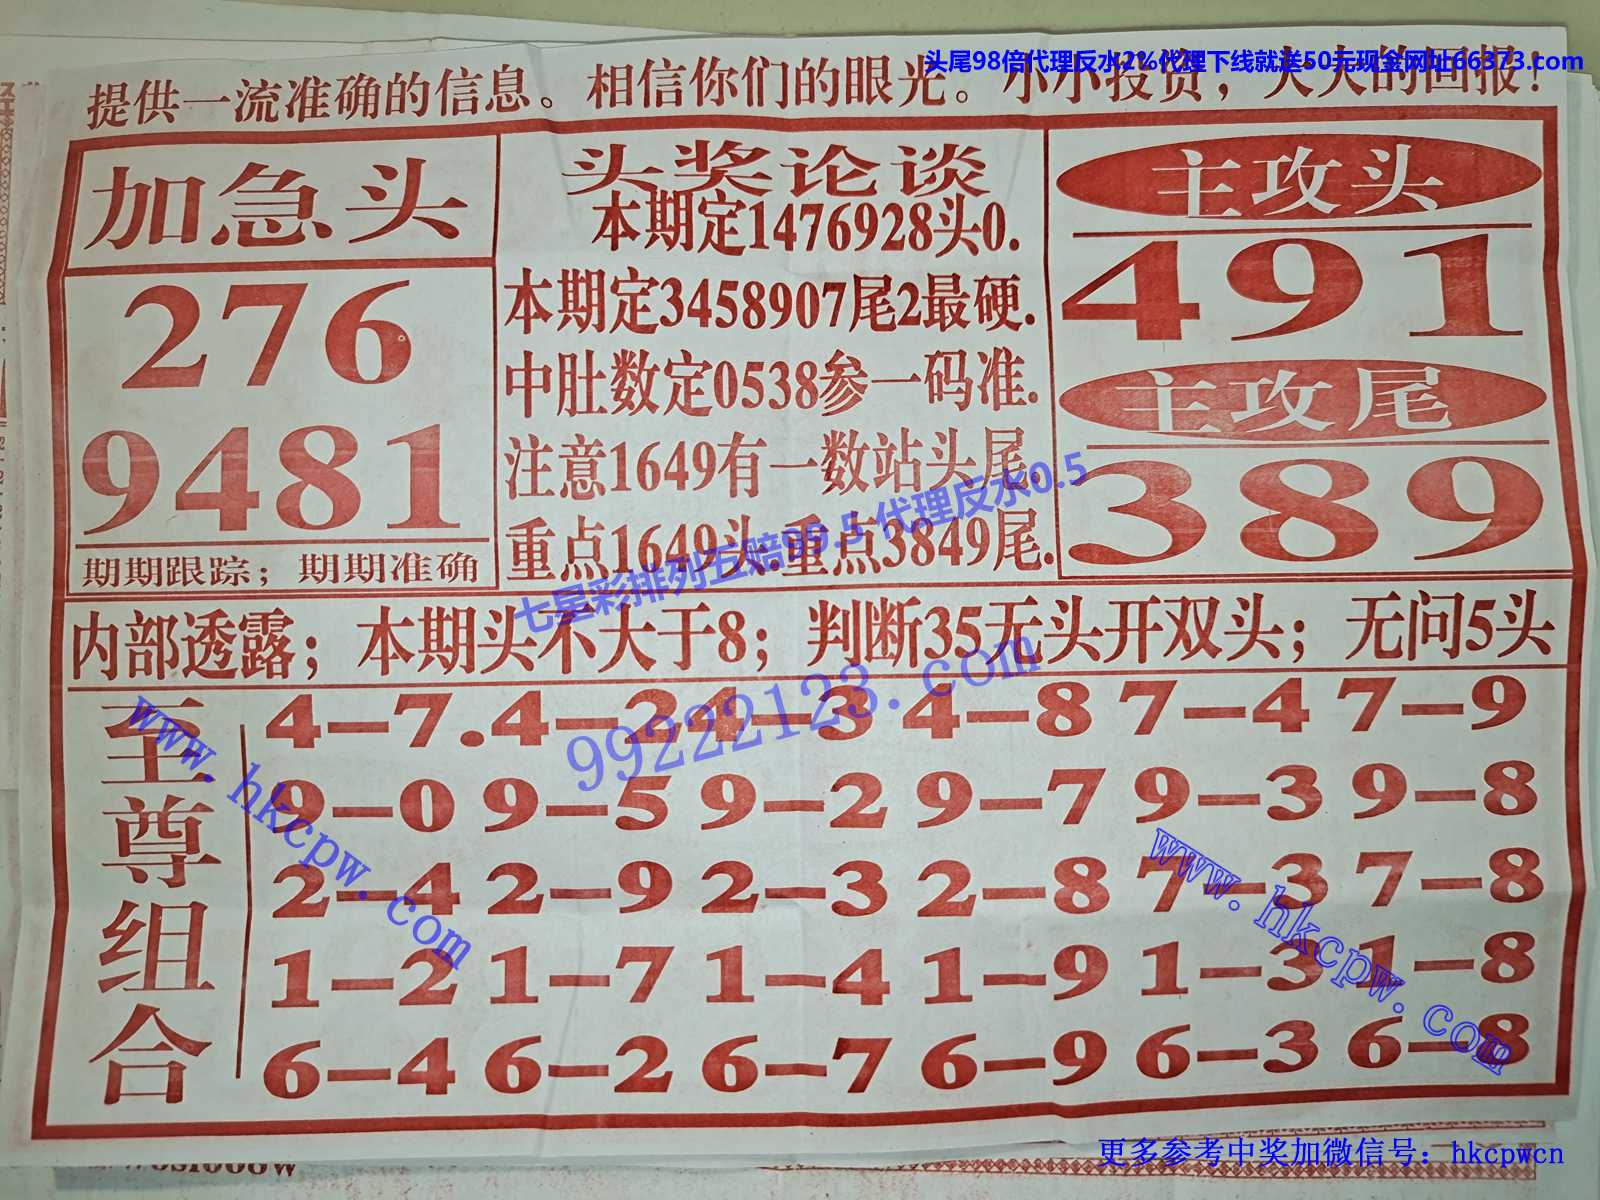 头尾98倍代理反水2%代理下线就送50元现金网址66373.com
提供一流准确的信息。相信你们的眼光。小小投资，大大的回报！
加急头
276
9481
期期跟踪；期期准确
头奖论谈
本期定1476928头0.
本期定3458907尾2最硬.
中肚数定0538参一码准.
注意1649有一数站头尾.
重点1649头.重点3849尾.
主攻头
491
主攻尾
389
七星彩排列五赔99.5 代理反水0.5
99222123.com
内部透露；本期头不大于8；判断35无头开双头；无问5头
至尊组合
4—7.4—2 4—3 4—8 7—4 7—9
9—0 9—5 9—2 9—7 9—3 9—8
2—4 2—9 2—3 2—8 7—3 7—8
1—2 1—7 1—4 1—9 1—3 1—8
6—4 6—2 6—7 6—9 6—3 6—8
www.hkcpw.com
www.hkcpw.com
更多参考中奖加微信号：hkcpwcn